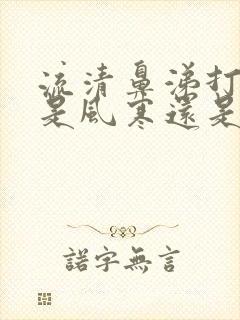 流清鼻涕打
是風寒還是
諾字無言